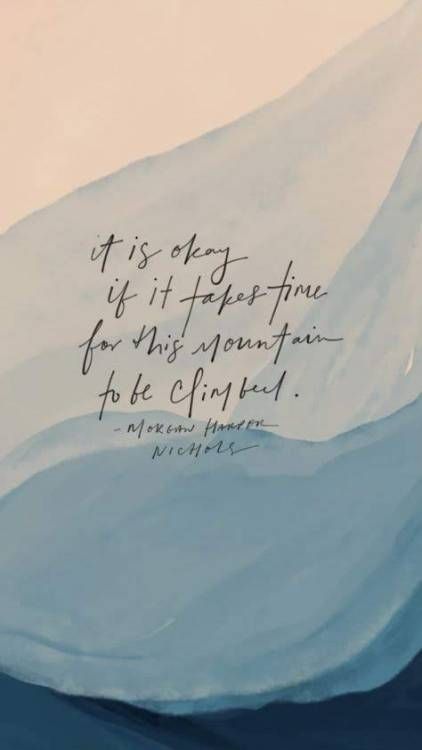 it is okay
if it takes time
for this mountain
to be climbed.
- MORGAN HARPER
NICHOLS